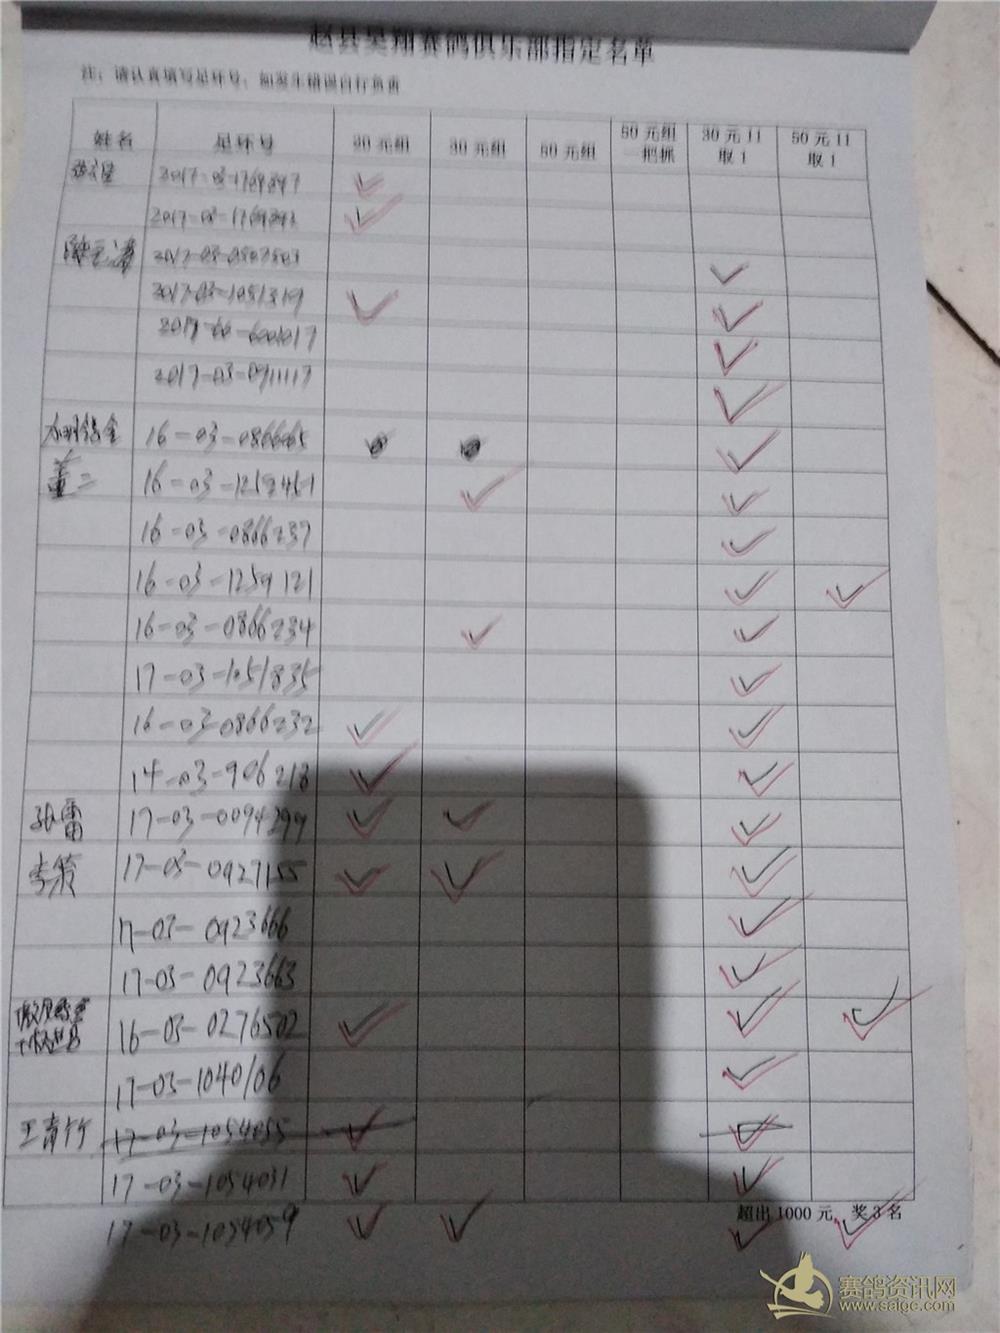 赵县昊翔赛鸽俱乐部指定名单
注：请认真填写足环号，如发生错误自行负责
姓名 足环号 30元组 30元组 50元组 50元组一把抓 30元11取1 50元11取1
2017-03-1769397 ✓
2017-03-1769392 ✓
2017-03-0507503 ✓
2017-03-1051319 ✓ ✓
✓
2017-03-0911117 ✓
16-03-0866665 ✓
董二 16-03-1259451 ✓ ✓
16-03-0866237 ✓
16-03-1259121 ✓ ✓
16-03-0866234 ✓ ✓
17-03-1051835 ✓
16-03-0866232 ✓ ✓
14-03-906218 ✓ ✓
孙雷 17-03-0094299 ✓ ✓ ✓
17-03-0927155 ✓ ✓ ✓
17-03-0923666 ✓
17-03-0923663 ✓
16-03-0276502 ✓ ✓ ✓
17-03-1040106 ✓
王青竹 17-03-1054055 ✓ ✓
17-03-1054031 ✓ ✓
超出1000元，奖3名
17-03-1054059 ✓ ✓ ✓ ✓
赛鸽资讯网
www.saigc.com